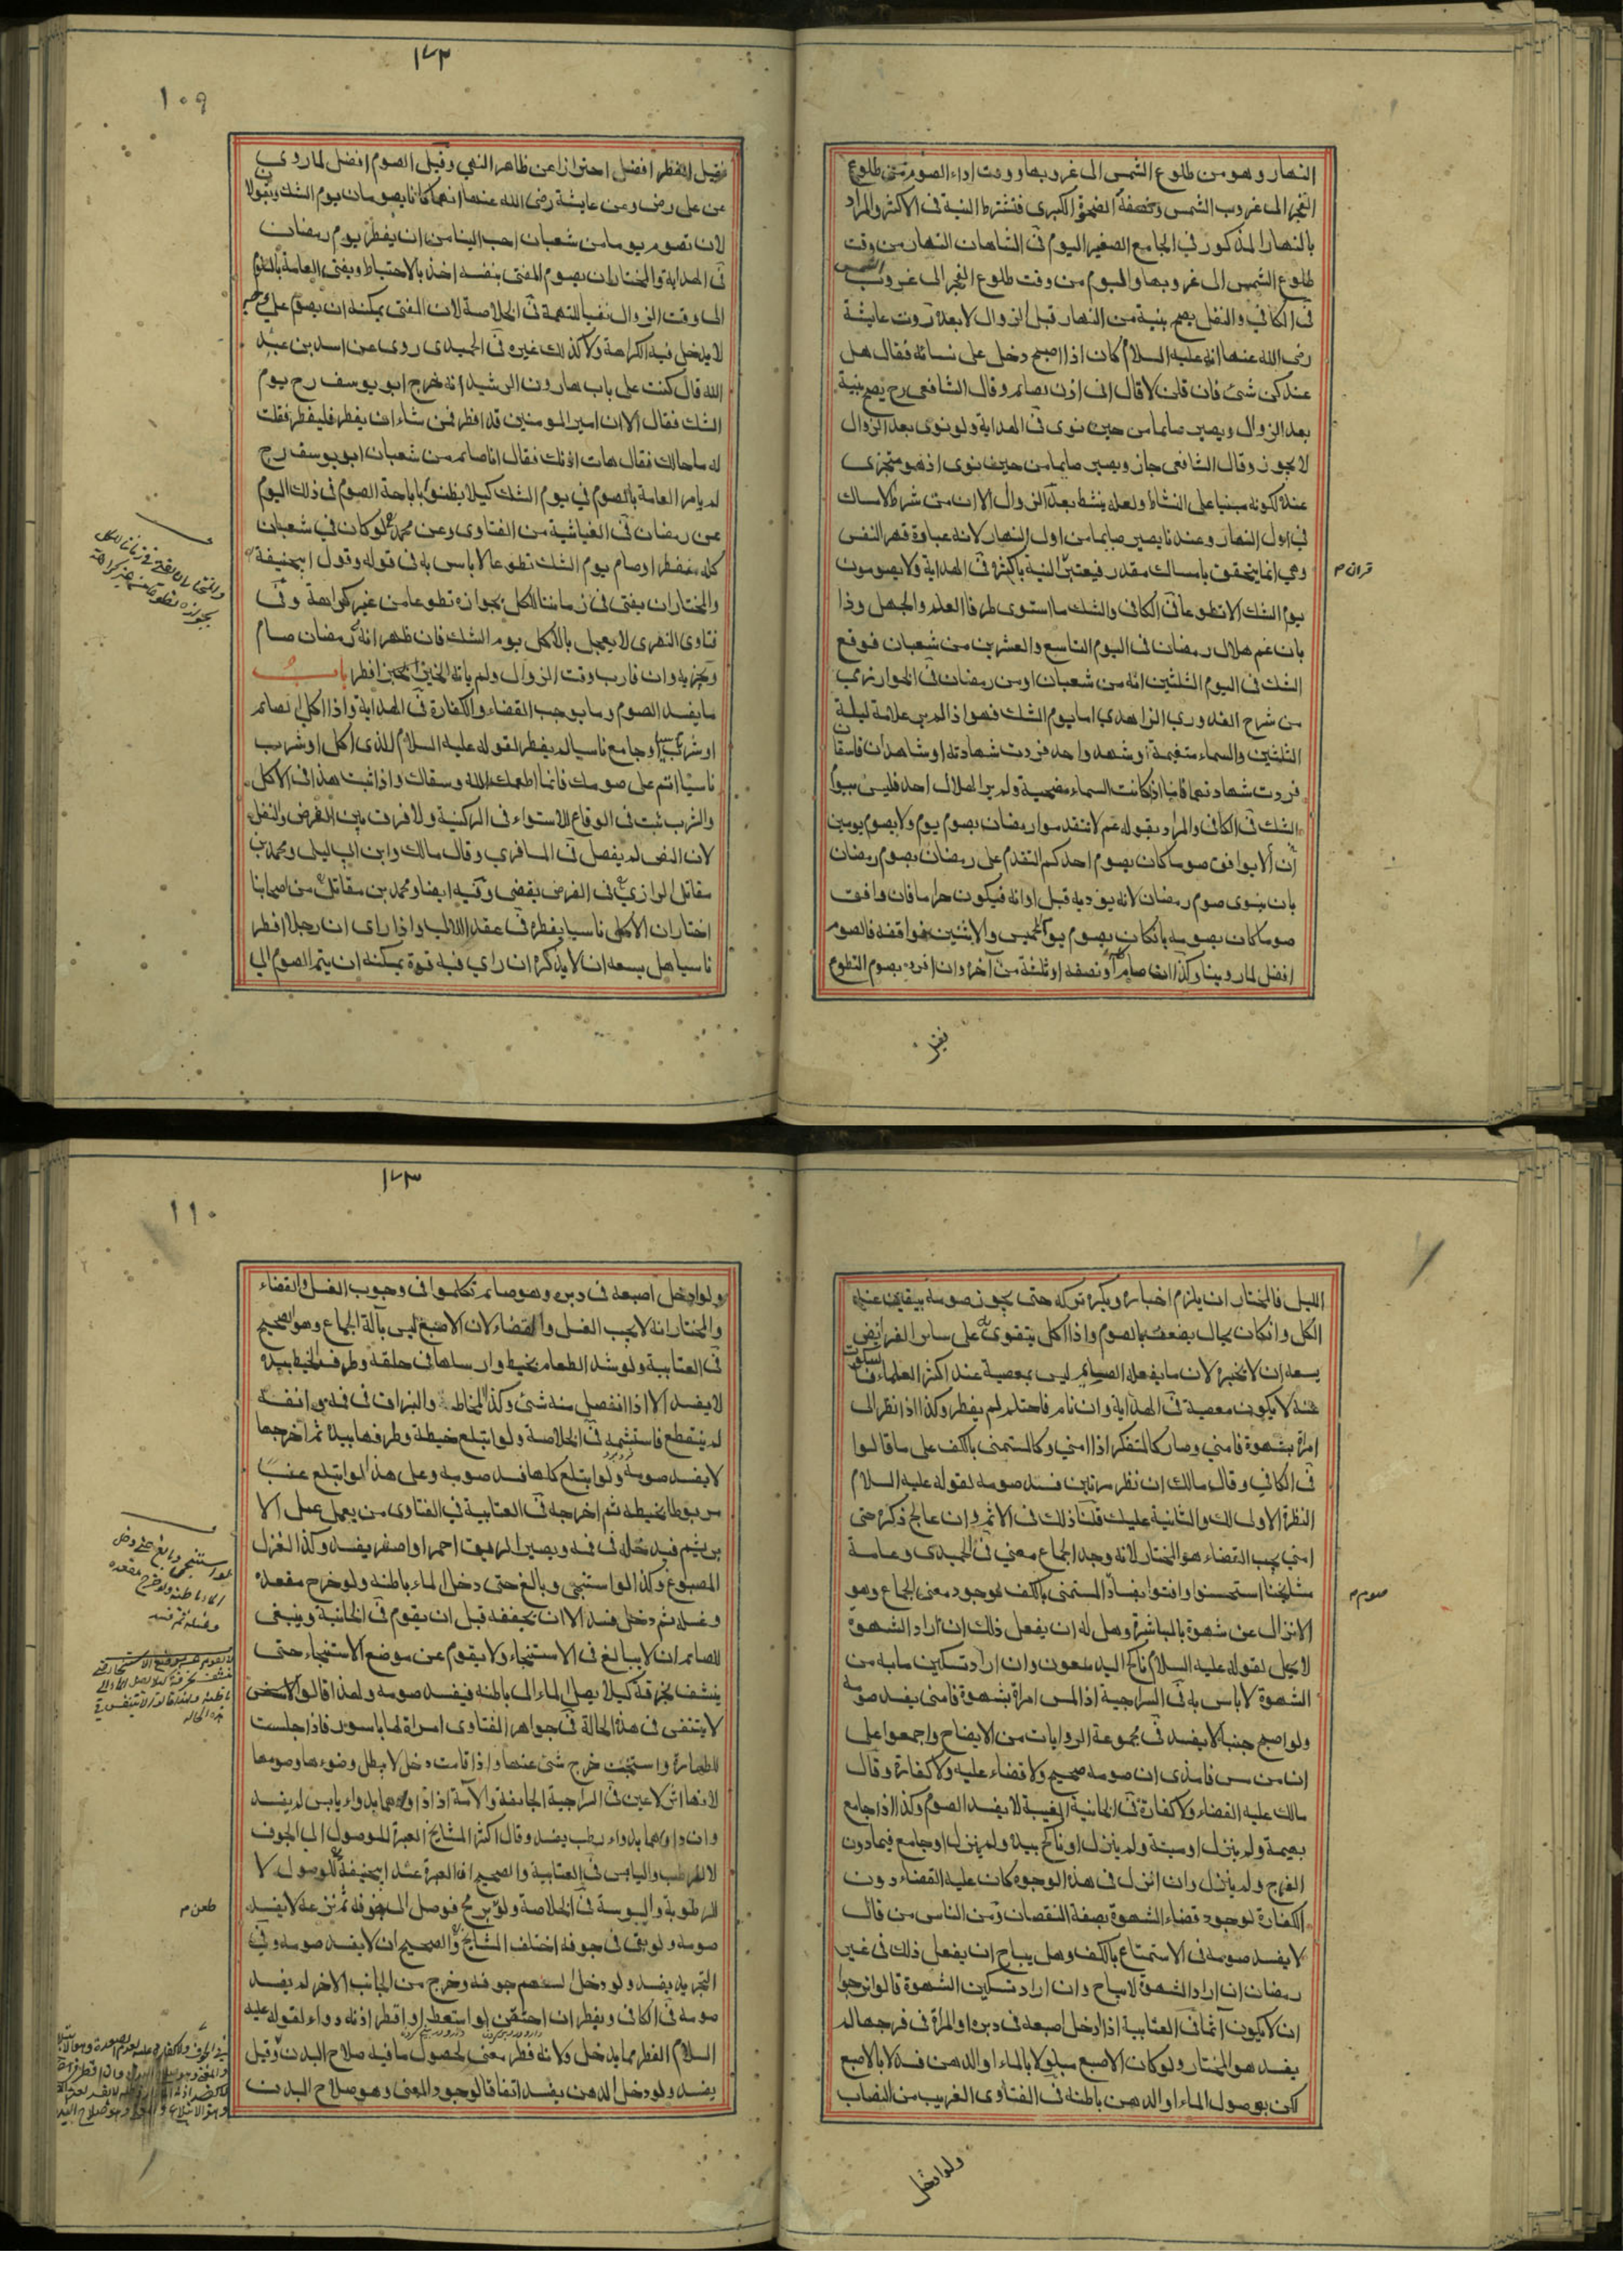 النهار وهو من طلوع الشمس الى غروبها ووقت اداء الصوم من طلوع
الفجر الى غروب الشمس ونصفه الضحوة الكبرى فتشترط النية في الاكثر والمراد
بالنهار المذكور في الجامع الصغير اليوم في الشاهان النهار من وقت
طلوع الشمس الى غروبها واليوم من وقت طلوع الفجر الى غروب الشمس
في الكافي والنفل يصح بنية من النهار قبل الزوال لا بعده روت عايشة
رضى الله عنها انه عليه السلام كان اذا اصبح دخل على نسائه فقال هل
عندكن شئ فان قلن لا قال انى اذن صائم وقال الشافعى رح يصح بنية
بعد الزوال ويصير صايما من حين نوى في الهداية ولو نوى بعد الزوال
لا يجوز وقال الشافعى جاز ويصير صايما من حين نوى اذ هو متجزى
عنده لكونه مبنيا على النشاط ولعله ينشط بعد الزوال الا ان من شرط الامساك
في اول النهار وعندنا يصير صايما من اول النهار لانه عبادة قهر النفس
وهي انما يتحقق بامساك مقدر فيعتبر النية باكثره في الهداية ولا يصومون
قران م
يوم الشك الا تطوعا في الكافى والشك ما استوى طرفا العلم والجهل وذا
بان غم هلال رمضان في اليوم التاسع والعشرين من شعبان فوقع
الشك في اليوم الثلثين انه من شعبان او من رمضان في الخوارزمي
من شرح القدوري الزاهدي اما يوم الشك فهو اذا لم ير علامة ليلة
الثلثين والسماء متغيمة او شهد واحد فردت شهادته او شاهدان فاسقان
فردت شهادتهما فاما اذا كانت السماء مصحية ولم ير الهلال احد فليس بيوم
الشك في الكافى والمراد بقوله عم لا تتقدموا رمضان بصوم يوم ولا بصوم يومين
ان لا يوافق صوما كان يصوم احدكم التقدم على رمضان بصوم رمضان
بان ينوى صوم رمضان لانه يؤديه قبل اوانه فيكون حراما فان وافق
صوما كان يصومه بان كان يصوم يوم الخميس والاثنين فوافقه فالصوم
افضل لما روينا وكذا ان صام كله او نصفه او ثلثة من آخره وان افرده بصوم التطوع
فقيل
١٧٢
١٠٩
فقيل الفطر افضل احترازا عن ظاهر النهي وقيل الصوم افضل لما روي
عن على رض وعن عايشة رضى الله عنها انهما كانا يصومان يوم الشك ويقولان
لان نصوم يوما من شعبان احب الينا من ان يفطر يوم رمضان
في الهداية والمختار ان يصوم المفتى بنفسه اخذ بالاحتياط ويفتى العامة بالتلوم
الى وقت الزوال نفيا للتهمة في الخلاصة لان المفتى يمكنه ان يصوم على وجه
لا يدخل فيه الكراهة ولا كذلك غيره في الحميدى روى عن اسد بن عبد
الله قال كنت على باب هارون الرشيد انه خرج ابو يوسف رح يوم
الشك فقال الا ان امير المومنين قد افطر فمن شاء ان يفطر فليفطر فقلت
له ما حالك فقال هات اذنك فقال انا صائم من شعبان ابو يوسف رح
لم يامر العامة بالصوم في يوم الشك كيلا يظنوا باباحة الصوم في ذلك اليوم
عن رمضان في الغياثية من الفتاوى وعن محمد لو كان في شعبان
كله مفطرا وصام يوم الشك تطوعا لا باس به في قوله وقول ابيحنيفة
والمختار ان يفتى في زماننا للكل بجوازه تطوعا من غير كراهة وفى
فتاوى النهرى لا يعجل بالاكل يوم الشك فان ظهر انه رمضان صام
ويجزيه وان قارب وقت الزوال ولم ياته افطر باب
ما يفسد الصوم وما يوجب القضاء والكفارة في الهداية واذا اكل الصائم
او شرب او جامع ناسيا لم يفطر لقوله عليه السلام للذى اكل او شرب
ناسيا اتم على صومك فانما اطعمك الله وسقاك واذا ثبت هذا في الاكل
والشرب ثبت في الوقاع للاستواء في الركنية ولا فرق بين الفرض والنفل
لان النص لم يفصل في المسافري وقال مالك وابن ابي ليلى ومحمد بن
مقاتل الرازي في الفرض يقضى وفيه ايضا ومحمد بن مقاتل من اصحابنا
اختار ان الاكل ناسيا يفطره في عقد اللالي واذا راى ان رجلا افطر
ناسيا هل يسعه ان لا يذكره ان راي فيه قوة يمكنه ان يتم الصوم الي
الليل فالمختار ان يلزم اخباره ويكره تركه حتى يجوز صومه بيقين عند
الكل وان كان بحال يضعف بالصوم واذا اكل يتقوى على ساير الفرايض
يسعه ان لا يخبره لان ما يفعله الصيام ليس بمعصية عند اكثر العلماء فالسكوت
عنه لا يكون معصية في الهداية وان نام فاحتلم لم يفطر وكذا اذا نظر الى
امراة بشهوة فامني وصار كالمتفكر اذا امني وكالمستمنى بالكف على ما قالوا
في الكافي وقال مالك ان نظر مرتين فسد صومه لقوله عليه السلام
النظرة الاولى لك والثانية عليك قلنا ذلك في الاثم وان عالج ذكره حتى
امني يجب القضاء هو المختار لانه وجد الجماع معني في الحميدى وعامة
مشايخنا استحسنوا وافتوا بفساد المستمنى بالكف لوجود معنى الجماع وهو
صوم م
الانزال عن شهوة بالمباشرة وهل له ان يفعل ذلك ان اراد الشهوة
لا يحل لقوله عليه السلام ناكح اليد ملعون وان اراد تسكين ما به من
الشهوة لا باس به في السراجية اذا لمس امراة بشهوة فامنى يفسد صومه
ولو اصبح جنبا لا يفسد في مجموعة الروايات من الايضاح واجمعوا على
ان من مس فامذى ان صومه صحيح ولا قضاء عليه ولا كفارة وقال
مالك عليه القضاء ولا كفارة في الخانية الغيبة لا يفسد الصوم وكذا اذا جامع
بهيمة ولم ينزل او ميتة ولم ينزل او ناكح بيده ولم ينزل او جامع فيما دون
الفرج ولم ينزل وان انزل في هذه الوجوه كان عليه القضاء دون
الكفارة لوجود قضاء الشهوة بصفة النقصان ومن الناس من قال
لا يفسد صومه في الاستمتاع بالكف وهل يباح ان يفعل ذلك في غير
رمضان ان اراد الشهوة لا يباح وان اراد تسكين الشهوة قالوا نرجوا
ان لا يكون آثما في العتابية اذا ادخل اصبعه في دبره او المراة في فرجها لم
يفسد هو المختار ولو كان الاصبع مبلولا بالماء او الدهن فسد لا بالاصبع
لكن بوصول الماء او الدهن باطنه في الفتاوى الغريب من النصاب
ولو ادخل
١٧٣
١١٠
ولو ادخل اصبعه في دبره وهو صائم تكلموا في وجوب الغسل والقضاء
والمختار انه لا يجب الغسل والقضاء لان الاصبع ليس بآلة الجماع وهو الصحيح
في العتابية ولو شد الطعام بخيط وارسلها في حلقه وطرف الخيط بيده
لا يفسد الا اذا انفصل منه شئ وكذا المخاط والبزاق في فمه وانفه
لم ينقطع فاستشمه في الخلاصة ولو ابتلع خيطة وطرفها بيده ثم اخرجها
لا يفسد صومه ولو ابتلع كلها فسد صومه وعلى هذا لو ابتلع عنبا
مربوطا بخيطه ثم اخرجه في العتابية في الفتاوى من يعمل عمل الا
بريشم فيدخله في فمه ويصير الريق احمر او اصفر يفسد وكذا الغزل
المصبوغ وكذا لو استنجى وبالغ حتى دخل الماء باطنه ولو خرج مقعده
وغسله ثم دخل فسد الا ان يجففه قبل ان يقوم في الخانية وينبغى
للصائم ان لا يبالغ في الاستنجاء ولا يقوم عن موضع الاستنجاء حتى
ينشف بخرقة كيلا يصل الماء الى باطنه فيفسد صومه ولهذا قالوا
لا يتنفس في هذه الحالة في جواهر الفتاوى امراة لها باسور فاذا جلست
للطهارة واستنجت خرج شئ عنها واذا قامت دخل لا يبطل وضوءها وصومها
لانها اثر لا عين في السراجية الجائفة والآمة اذا داواهما بدواء يابس لم يفسد
وان داواهما بدواء رطب يفسد وقال اكثر المشايخ العبرة للوصول الى الجوف
لا للرطب واليابس في العتابية والصحيح ان العبرة عند ابيحنيفة للوصول لا
للرطوبة واليبوسة في الخلاصة ولو برمح فوصل الى جوفه ثم نزعه لا يفسد
طعن م
صومه ولو بقى في جوفه اختلف المشايخ والصحيح ان لا يفسد صومه وفي
التجريد يفسد ولو دخل السهم جوفه وخرج من الجانب الاخر لم يفسد
صومه في الكافى ويفطر ان احتقن او استعط او اقطر اذنه دواء لقوله عليه
السلام الفطر مما يدخل ولانه فطر معنى لحصول ما فيه صلاح البدن وقيل
يفسد ولو دخل الدهن يفسد اتفاقا لوجود المعنى وهو صلاح البدن